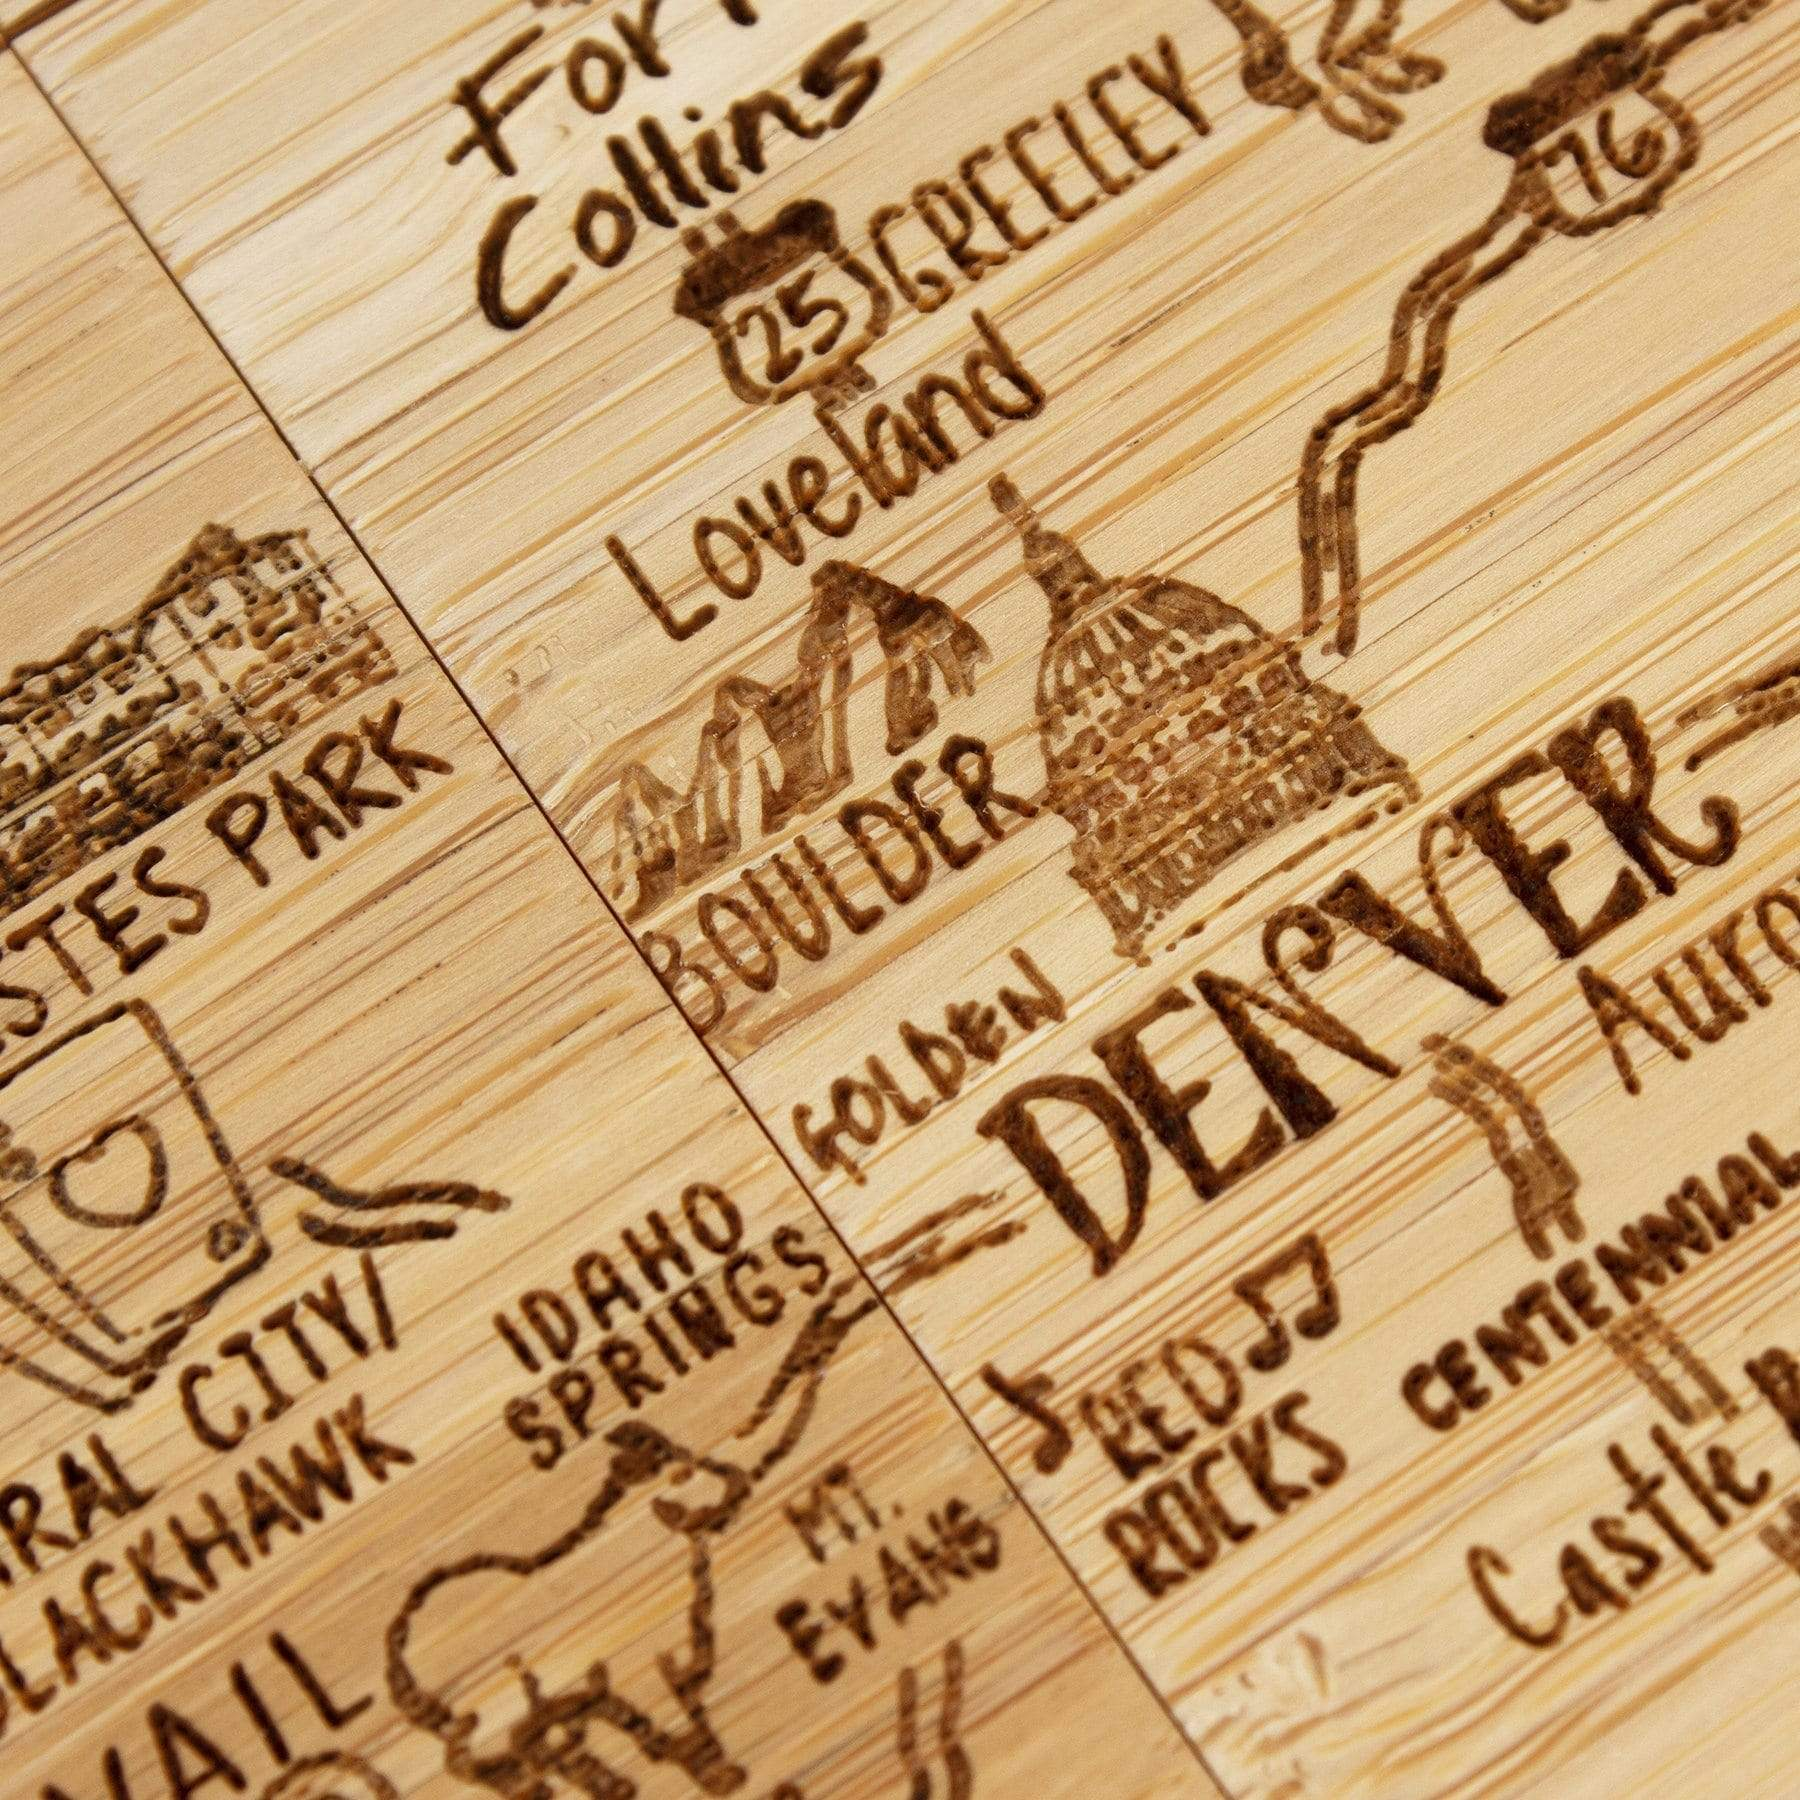 Fort
Collins
25
GREELEY
76
Loveland
ESTES PARK
BOULDER
GOLDEN
DENVER
CENTRAL CITY/
BLACKHAWK
IDAHO
SPRINGS
RED
ROCKS
CENTENNIAL
MT.
EVANS
Castle
VAIL